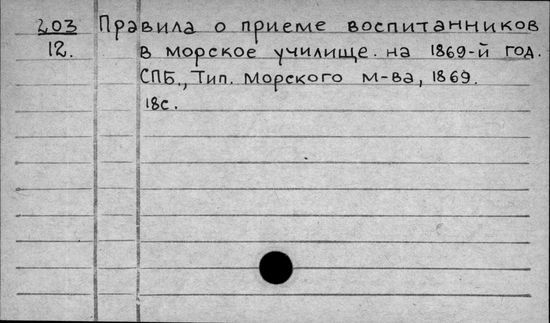 203 Правила о приеме воспитанников
12. в морское училище. на 1869-й год.
СПБ., Тип. Морского м-ва, 1869.
18с.